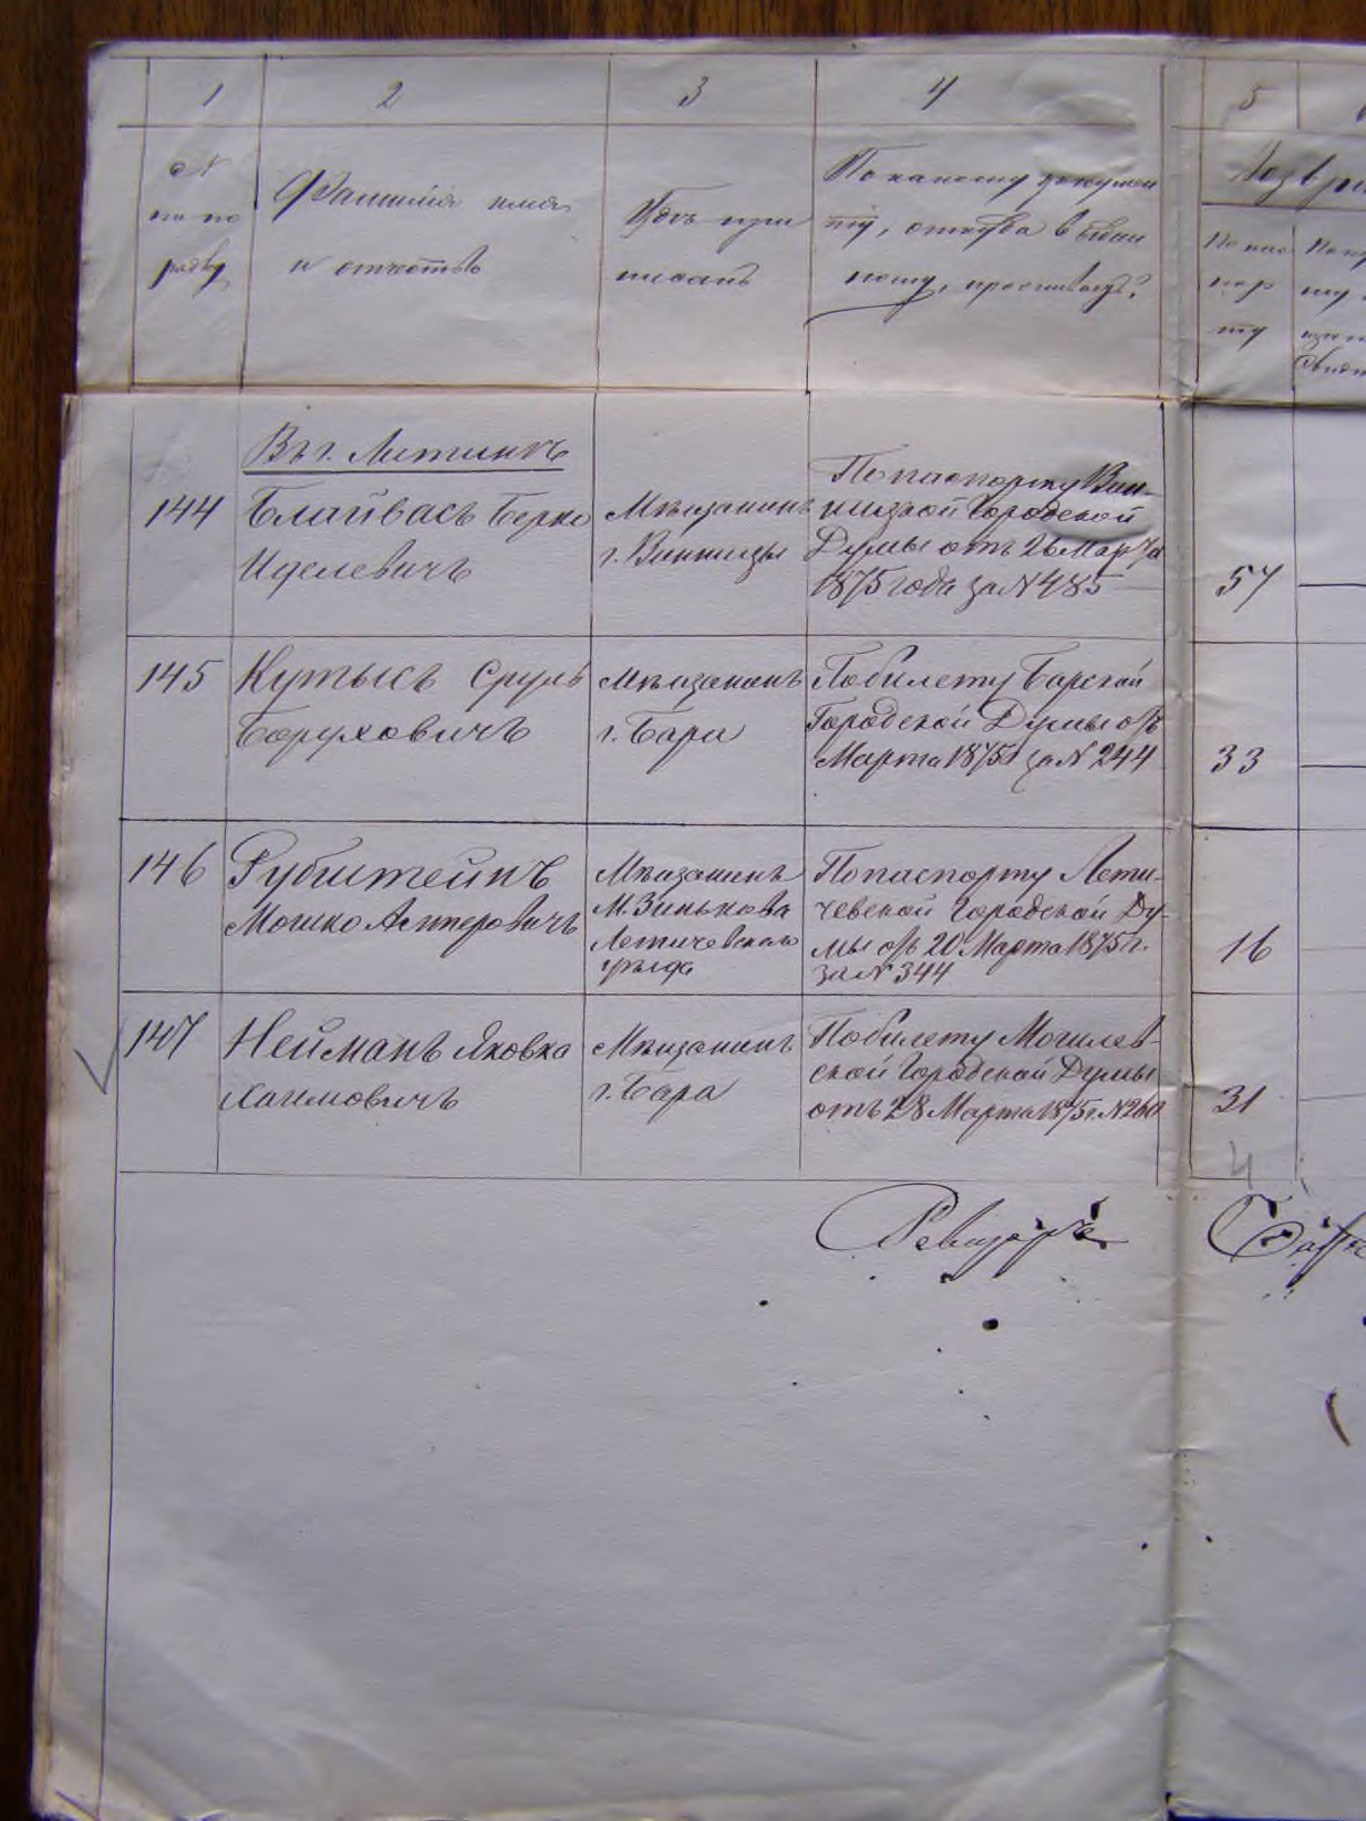 1 2 3 4 5
№
по по
рядку
Фамилія имя
и отчество
Гдѣ при
писанъ
По какому докумен
ту, откуда выдан
ному, проживаетъ?
Возра
По пас
пор
ту
По
Въ г. Литинѣ
144
Блайвасъ Берко
Иделевичъ
Мѣщанинъ
г. Винницы
По паспорту Вин-
ницкой Городской
Думы отъ 26 Марта
1875 года за № 485
57
145
Кутысъ Сруль
Боруховичъ
Мѣщанинъ
г. Бара
По билету Барской
Городской Думы отъ
Марта 1875 за № 244
33
146
Рубштейнъ
Мошко Аспперовичъ
Мѣщанинъ
М. Зинькова
Летичевскаго
уѣзда
По паспорту Лети-
чевской Городской Ду-
мы отъ 20 Марта 1875 г.
за № 344
16
147
Нейманъ Яковка
Хаимовичъ
Мѣщанинъ
г. Бара
По билету Могилев-
ской Городской Думы
отъ 28 Марта 1875 г. № 260
31
4
Ревизоръ